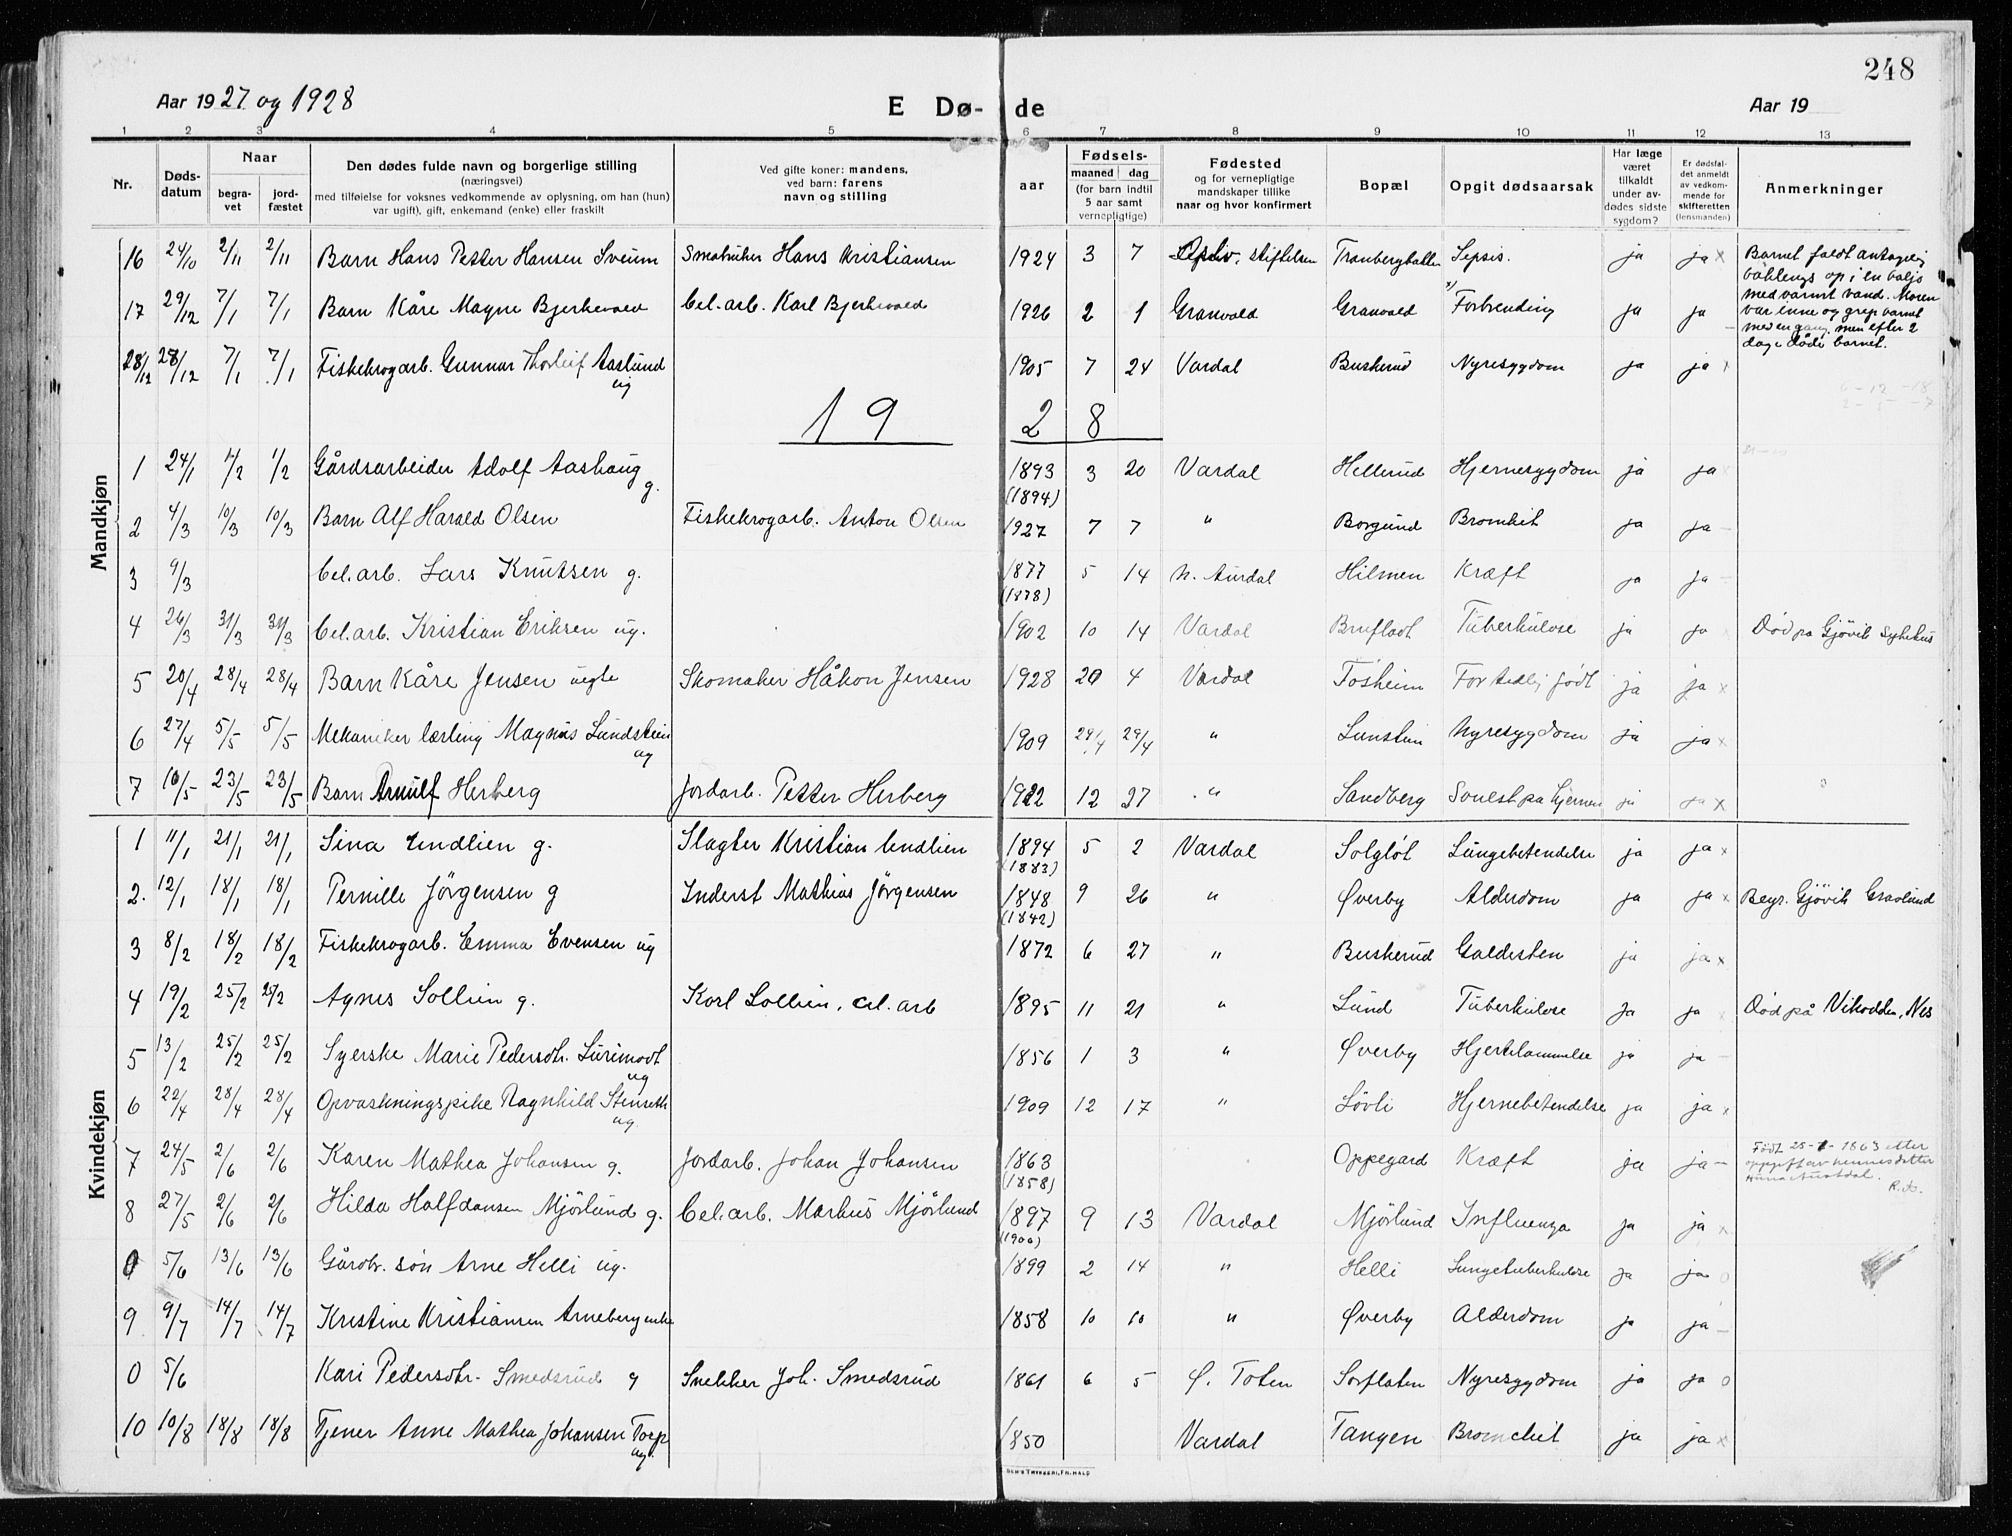 248
Aar 1927 og 1928
E Dø- de
Aar 19
1 2 3 4 5 6 7 8 9 10 11 12 13
Nr.
Døds-datum
Naar
begra-vet
jord-fæstet
Den dødes fulde navn og borgerlige stilling
(næringsvei)
med tilføielse for voksnes vedkommende av oplysning, om han (hun)
var ugift), gift, enkemand (enke) eller fraskilt
Ved gifte koner: mandens,
ved barn: farens
navn og stilling
aar
Fødsels-
maaned dag
(for barn indtil
5 aar samt
vernepligtige)
Fødested
og for vernepligtige
mandskaper tillike
naar og hvor konfirmert
Bopæl
Opgit dødsaarsak
Har læge
været
tilkaldt
under av-
dødes sidste
sygdom?
Er dødsfal-
det anmeldt
av vedkom-
mende for
skifteretten
(lensmanden)
Anmerkninger
16 24/10 2/11 2/11 Barn Hans Petter Hansen Sveum Småbruker Hans Kristiansen 1924 3 7 stiftelsen Tranbergbakken Sepsis. ja ja x
17 29/12 7/1 7/1 Barn Kåre Magne Bjerkevold Cel. arb. Karl Bjerkevold 1926 2 1 Granvold Granvold Forbrending ja ja –
Barnet faldt antagelig
baklengs op i en balje
med varmt vand. Moren
var inne og grep barnet
med en gang, men efter 2
dage døde barnet.
28/12 28/12 7/1 7/1 Fiskekrogarb. Gunnar Thorleif Aaslund ug 1905 7 24 Vardal Buskerud Nyresygdom ja ja x
19 28
Mandkjøn
1 24/1 1/2 1/2 Gårdsarbeider Adolf Aashaug g. 1893 (1894) 3 20 Vardal Hellerud Hjernesygdom ja ja x
2 4/3 10/3 10/3 Barn Alf Harald Olsen Fiskekrogarb. Anton Olsen 1927 7 7 " Borgund Bronkit ja ja –
3 9/3 Cel. arb. Lars Knutsen g. 1877 (1878) 5 14 N. Aurdal Hilmen Kræft ja ja –
4 26/3 31/3 31/3 Cel. arb. Kristian Eriksen ug. 1902 10 14 Vardal Brufladt Tuberkulose ja ja x Død på Gjövik sykehus
5 20/4 28/4 28/4 Barn Kåre Jensen uegte Skomaker Håkon Jensen 1928 20 4 Vardal Tosheim For tidlig født ja ja x
6 27/4 5/5 5/5 Mekaniker lærling Magnus Lundstein ug 1909 29/4 29/4 " Lunstein Nyresygdom ja ja x
7 10/5 23/5 23/5 Barn Arnulf Herberg Jordarb. Petter Herberg 1922 12 27 " Sandberg ja ja x
Kvindekjøn
1 11/1 21/1 21/1 Sina Endlien g. Slagter Kristian Endlien 1894 (1883) 5 2 Vardal Solgløt Lungebetendelse ja ja x
2. 12/1 18/1 18/1 Pernille Jörgensen g Inderst Mathias Jörgensen 1848 (1842) 9 26 " Øverby Alderdom ja ja x Begr. Gjövik Gravlund
3 8/2 18/2 18/2 Fiskekrogarb. Emma Evensen ug 1872 6 27 " Buskerud Galdesten ja ja x
4 19/2 25/2 25/2 Agnes Sollien g. Karl Sollien, cel. arb 1895 11 21 " Lund Tuberkulose Ja ja x Død på Vikodden, Nes
5 13/2 25/2 25/2 Syerske Marie Pedersdtr. Lurimodt ug 1856 1 3 " Øverby Hjertelammelse ja ja –
6 22/4 28/4 28/4 Opvaskningspike Ragnhild Stenseth ug. 1909 12 17 " Lövli Hjernebetendelse ja ja x
7 24/5 2/6 2/6 Karen Mathea Johansen g. Jordarb. Johan Johansen 1863 (1858) Oppegard Kræft ja ja –
Født 25-1-1863 etter
oppgift av hennes datter
R.A.
8 27/5 2/6 2/6 Hilda Halfdansen Mjörlund g. Cel. arb. Markus Mjörlund 1897 (1900) 9 13 Vardal Mjörlund Influenza ja ja x
0 5/6 13/6 13/6 Gårdbr. sön Arne Helli ug. 1899 2 14 " Helli Lungetuberkulose ja ja o
9 9/7 14/7 14/7 Kristine Kristiansen Arneberg enke 1858 10 10 " Øverby Alderdom ja ja –
0 5/6 Kari Pedersdtr. Smedsrud g Snekker Joh. Smedsrud 1861 6 5 Ø. Toten Sorflaten Nyresygdom ja ja o
10 10/8 18/8 18/8 Tjener Anne Mathea Johansen Torp ug. 1850 Vardal Tangen Bronchit ja ja x